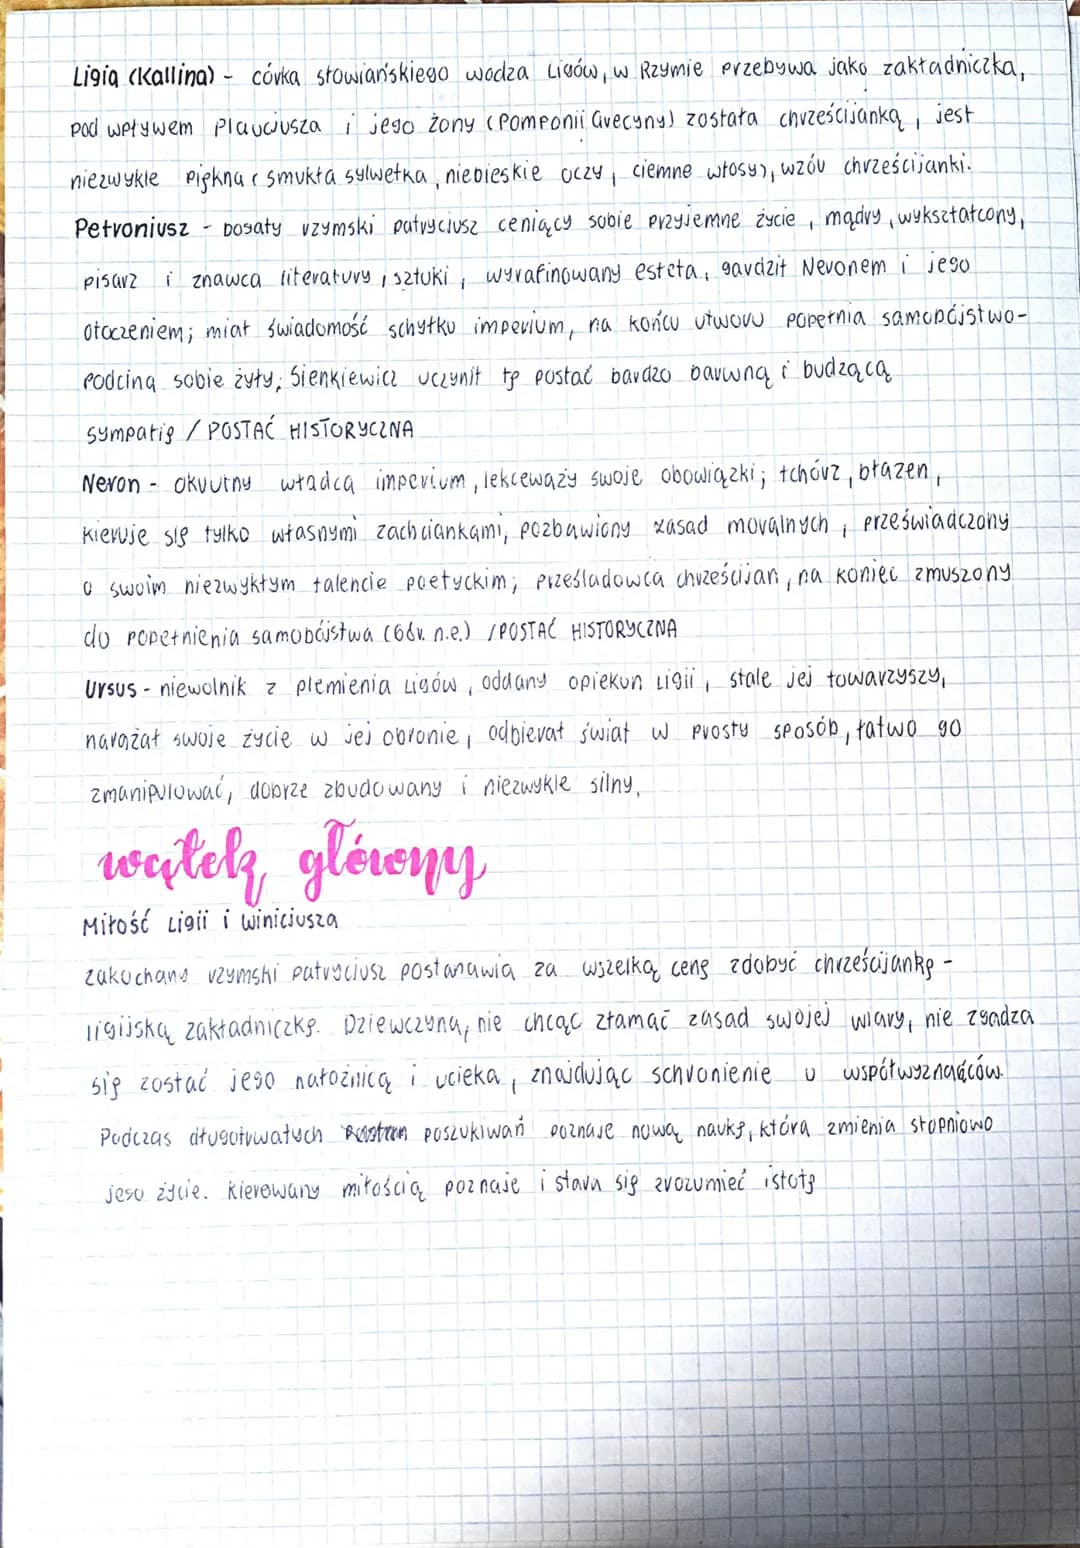 Ligia (Kallina) - córka słowiańskiego wodza Ligów, w Rzymie przebywa jako zakładniczka,
pod wpływem Plaucjusza i jego żony (Pomponii Grecyny) została chrześcijanką, jest
niezwykle piękna (smukła sylwetka, niebieskie oczy, ciemne włosy), wzór chrześcijanki.
Petroniusz - bogaty rzymski patrycjusz ceniący sobie przyjemne życie, mądry, wykształcony,
pisarz i znawca literatury, sztuki, wyrafinowany esteta, gardził Neronem i jego
otoczeniem; miał świadomość schyłku imperium, na końcu utworu popełnia samobójstwo-
podciną sobie żyły; Sienkiewicz uczynił tę postać bardzo barwną i budzącą
sympatię / POSTAĆ HISTORYCZNA
Neron - okrutny władca imperium, lekceważy swoje obowiązki; tchórz, błazen,
kieruje się tylko własnymi zachciankami, pozbawiony zasad moralnych, przeświadczony
o swoim niezwykłym talencie poetyckim; prześladowca chrześcijan, na koniec zmuszony
do popełnienia samobójstwa (68r. n.e.) / POSTAĆ HISTORYCZNA
Ursus - niewolnik z plemienia Ligów, oddany opiekun Ligii, stale jej towarzyszy,
narażał swoje życie w jej obronie, odbierał świat w prosty sposób, łatwo go
zmanipulować, dobrze zbudowany i niezwykle silny,
wątek główny
Miłość Ligii i Winicjusza
zakochany rzymski patrycjusz postanawia za wszelką cenę zdobyć chrześcijankę -
ligijską zakładniczkę. Dziewczyna, nie chcąc złamać zasad swojej wiary, nie zgadza
się zostać jego nałożnicą i ucieka, znajdując schronienie u współwyznawców.
Podczas długotrwałych poszukiwań poznaje nową naukę, która zmienia stopniowo
jego życie. Kierowany miłością poznaje i stara się zrozumieć istotę